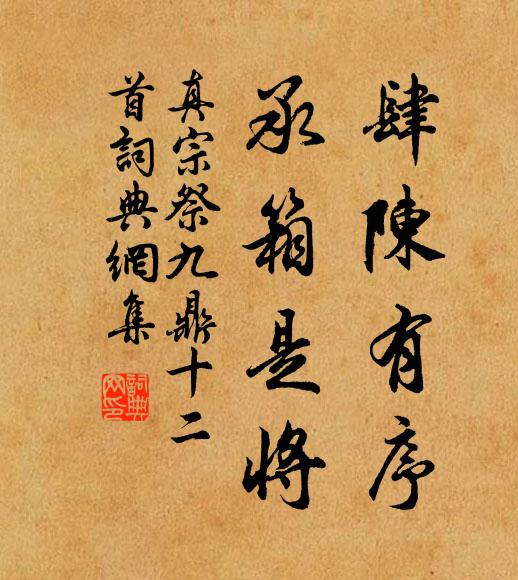 肆陳有序
承箱是將
真宗祭九鼎十二
首詞典網集
詞典
网印